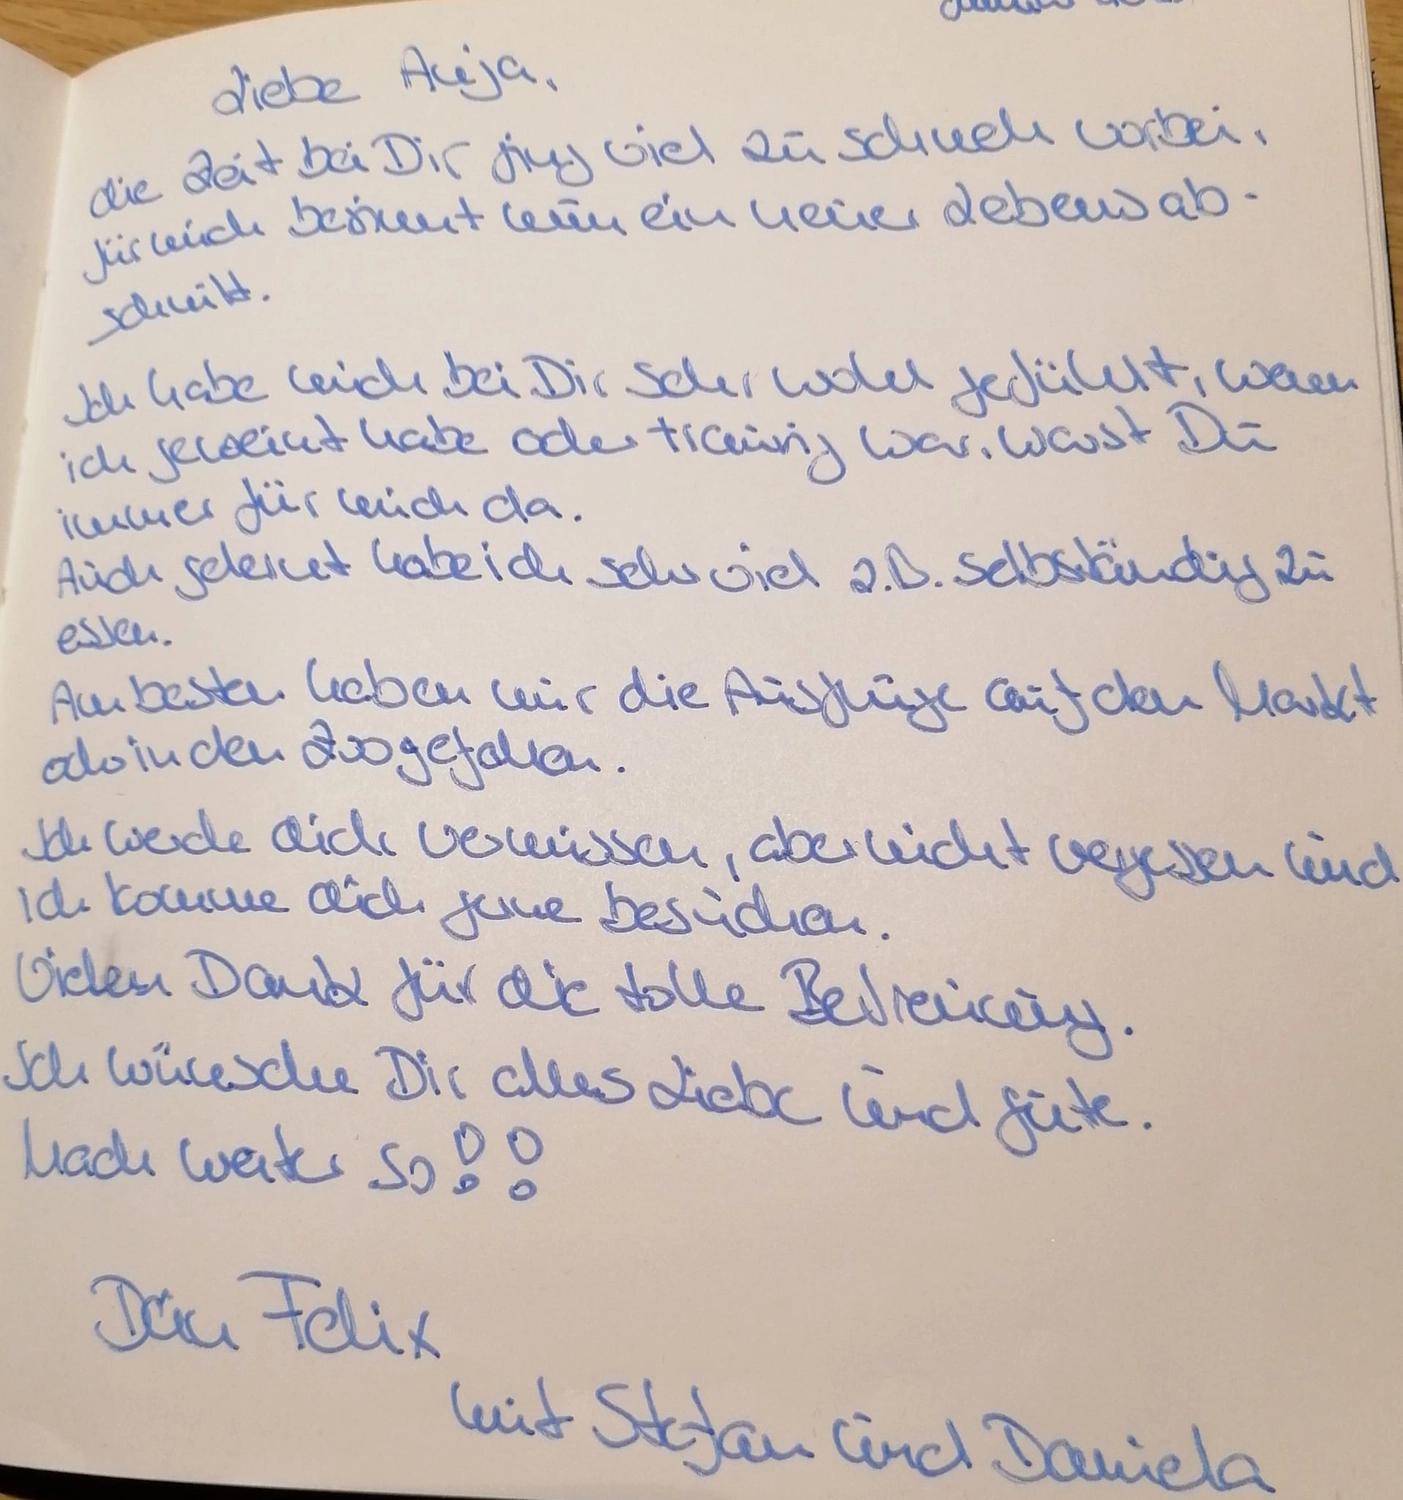 Liebe Anja,
die Zeit bei Dir ging viel zu schnell vorbei,
für mich beginnt nun ein neuer Lebensab-
schnitt.
Ich habe mich bei Dir sehr wohl gefühlt, wenn
ich geweint habe oder traurig war, warst Du
immer für mich da.
Auch gelernt habe ich sehr viel z.B. selbständig zu
essen.
Am besten haben mir die Ausflüge auf den Markt
od. in den Zoo gefallen.
Ich werde dich vermissen, aber nicht vergessen und
ich komme dich gerne besuchen.
Vielen Dank für die tolle Betreuung.
Ich wünsche Dir alles Liebe und gute.
Mach weiter so!!
Dein Felix
mit Stefan und Daniela